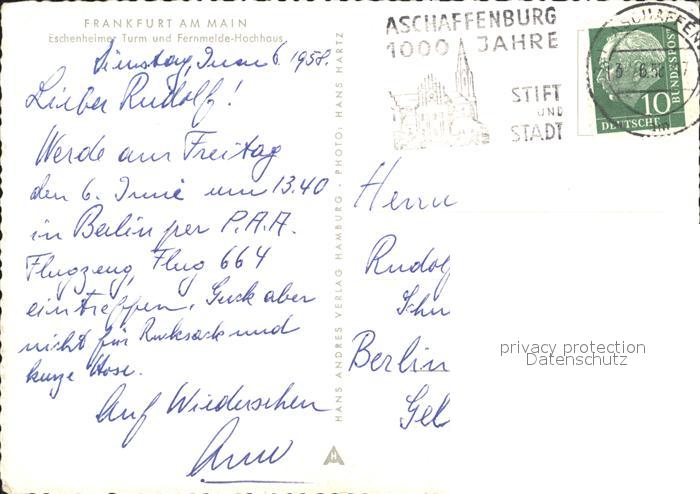 FRANKFURT AM MAIN
Eschenheimer Turm und Fernmelde-Hochhaus
Dienstag, 6. 1958.
Lieber Rudolf!
Werde am Freitag
den 6. Juni um 13.40
in Berlin per P.A.A.
Flugzeug, Flug 664
eintreffen. Guck aber
nicht für Rucksack und
kurze Hose.
Auf Wiedersehen
HANS ANDRES VERLAG HAMBURG · PHOTO: HANS HARTZ
ASCHAFFENBURG
1000 JAHRE
STIFT
UND
STADT
ASCHAFFEN
10
DEUTSCHE
BUNDESPOST
Herrn
Rudolf
Berlin
privacy protection
Datenschutz